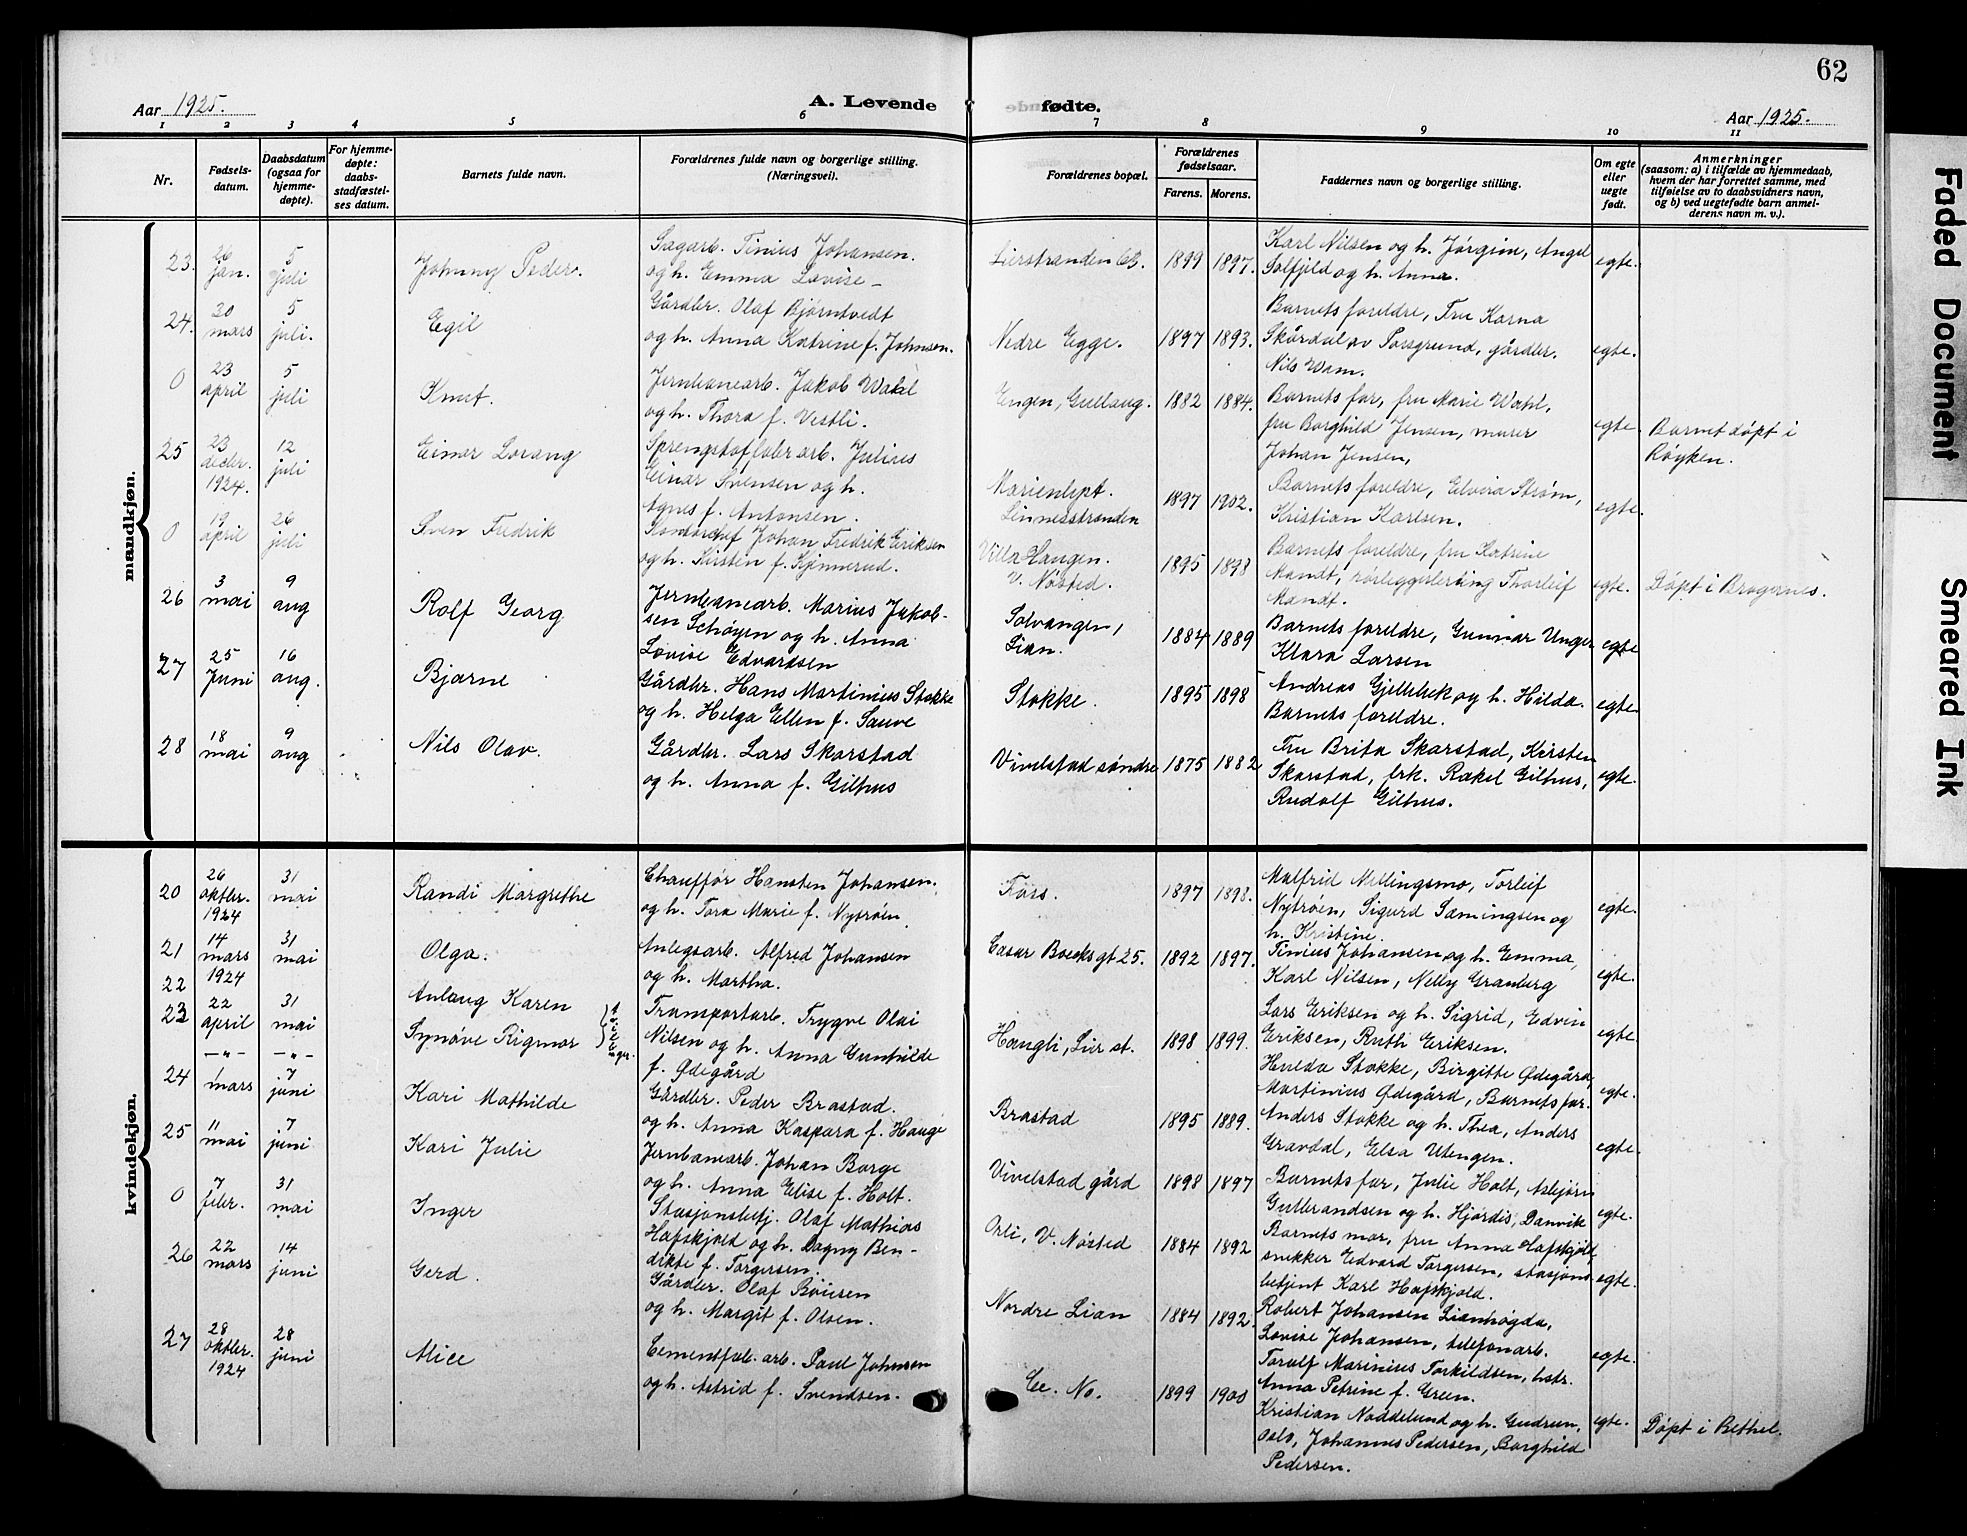 62
Aar 1925.
A. Levende fødte.
Aar 1925.
1 2 3 4 5 6 7 8 9 10 11
Nr.
Fødsels-
datum.
Daabsdatum
(ogsaa for
hjemme-
døpte).
For hjemme-
døpte:
daabs-
stadfæstel-
ses datum.
Barnets fulde navn.
Forældrenes fulde navn og borgerlige stilling.
(Næringsvei).
Forældrenes bopæl.
Forældrenes
fødselsaar.
Farens. Morens.
Faddernes navn og borgerlige stilling.
Om egte
eller
uegte
født.
Anmerkninger
(saasom: a) i tilfælde av hjemmedaab,
hvem der har forrettet samme, med
tilføielse av to daabsvidners navn,
og b) ved uegtefødte barn anmel-
derens navn m. v.).
mandkjøn.
23.
26
jan.
5
juli
Johnny Peder.
Sagarb. Tinius Johansen.
og h. Emma Lovise –
Lierstranden
1899 1897.
Karl Nilsen og h. Jørgine, Angel
Solfjeld og h. Anna.
egte.
24.
20
mars
5
juli.
Egil
Gårdbr. Olaf Bjørntvedt
og h. Anna Katrine f. Johnsen.
Nedre Egge.
1897 1893.
Barnets foreldre, Fru Karna
Skårdal av Porsgrund, gårdbr.
Nils Wam.
egte.
0
23
april
5
juli
Knut.
Jernbanearb. Jakob Wahl
og h. Thora f. Vestli.
Engen, Gullaug.
1882 1884.
Barnets far, fru Marie Wahl,
fru Borghild Jensen, murer
Johan Jensen,
egte.
Barnet døpt i
Røyken.
25
23
decbr.
1924.
12
juli
Einar Lorang
Sprengstoffabr arb. Julius
Einar Svensen og h.
Agnes f. Antonsen.
Marienlyst.
Linnesstranden
1897 1902.
Barnets foreldre, Elvira Strøm,
Kristian Karlsen.
egte.
0
19
april
26
juli
Sven Fredrik
Kontorchef Johan Fredrik Eriksen
og h. Kirsten f. Kjennerud.
Villa Haugen.
v. Nøsted.
1895 1898
Barnets foreldre, fru Katrine
Mandt, rørleggerlerling Thorleif
Mandt.
egte.
Døpt i Bragernes.
26
3
mai
9
aug
Rolf Georg
Jernbanearb. Marius Jakob-
sen Schøyen og h. Anna
Lovise Edvardsen
Solvangen,
Lian.
1884 1889
Barnets foreldre, Gunnar Unger
Klara Larsen
egte
27
25
Juni
16
aug.
Bjarne
Gårdbr. Hans Martinius Stokke
og h. Helga Ellen f. Sauve
Stokke.
1895 1898
Andreas Gjellebek og h. Hilda.
Barnets foreldre.
egte
28
18
mai
9
aug
Nils Olav.
Gårdbr. Lars Skarstad
og h. Anna f. Gilhus
Vivelstad søndre
1875 1882
Fru Brita Skarstad, Kirsten
Skarstad, frk. Rakel Gilhus,
Rudolf Gilhus.
egte.
kvindekjøn.
20
26
oktbr.
1924
31
mai
Randi Margrethe
Chauffør Hansten Johansen.
og h. Tora Marie f. Nytrøen
Foss.
1897 1898.
Malfrid Mellingsmo, Torleif
Nytrøen, Sigurd Samingsen og
h. Kristine.
egte.
21
14
mars
1924
31
mai
Olga.
Anlegsarb. Alfred Johansen
og h. Martha.
Cæsar Boecks gt 25.
1892 1897.
Tinius Johansen og h. Emma,
Karl Nilsen, Nelly Granberg
egte.
22
22
april
31
mai
Anlaug Karen
23
–"– –"–
Synøve Rigmor
Transportarb. Trygve Olai
Nilsen og h. Anna Gunhilde
f. Ødegård
Haugli, Lier st.
1898 1899.
Lars Eriksen og h. Sigrid, Edvin
Eriksen, Ruth Eriksen.
egte
Hulda Stokke, Birgitte Ødegård,
Martinius Ødegård, Barnets far.
egte.
24
1
mars
7
juni
Kari Mathilde
Gårdbr. Peder Brastad.
og h. Anna Kaspara f. Hauge
Brastad
1895 1889.
Anders Stokke og h. Thea, Anders
Gravdal, Elsa Utengen.
egte.
25
11
mai
7
juni
Kari Julie
Jernbanearb. Johan Borge
og h. Anna Elise f. Holt.
Vivelstad gård
1898 1897
Barnets far, Julie Holt, Asbjørn
Gulbrandsen og h. Hjørdis, Danvik
egte.
0
7
febr.
31
mai
Inger
Stasjonsbetj. Olaf Mathias
Hafskjold og h. Dagny Ben-
dikte f. Torgersen.
Orli, V. Nøsted
1884 1892
Barnets mor, fru Anna Hafskjold,
snekker Edvard Torgersen, stasjons
betjent Karl Hafskjold.
egte.
26
22
mars
14
juni
Gerd.
Gårdbr. Olaf Bøuesen
og h. Margit f. Olsen.
Nordre Lian
1884 1892.
Robert Johansen Lianhøgda,
Lovise Johansen, telefonarb.
Torolf Marinius Torkildsen, hstr.
Anna Petrine f. Green.
egte.
27
28
oktbr.
1924
28
juni
Alice
Cementfab. arb. Paul Johnsen
og h. Astrid f. Svendsen.
Ce. No.
1899 1900
Kristian Noddelund og h. Gudrun,
Oslo, Johannes Pedersen, Borghild
Pedersen.
egte.
Døpt i Bethel.
Faded Document
Smeared Ink